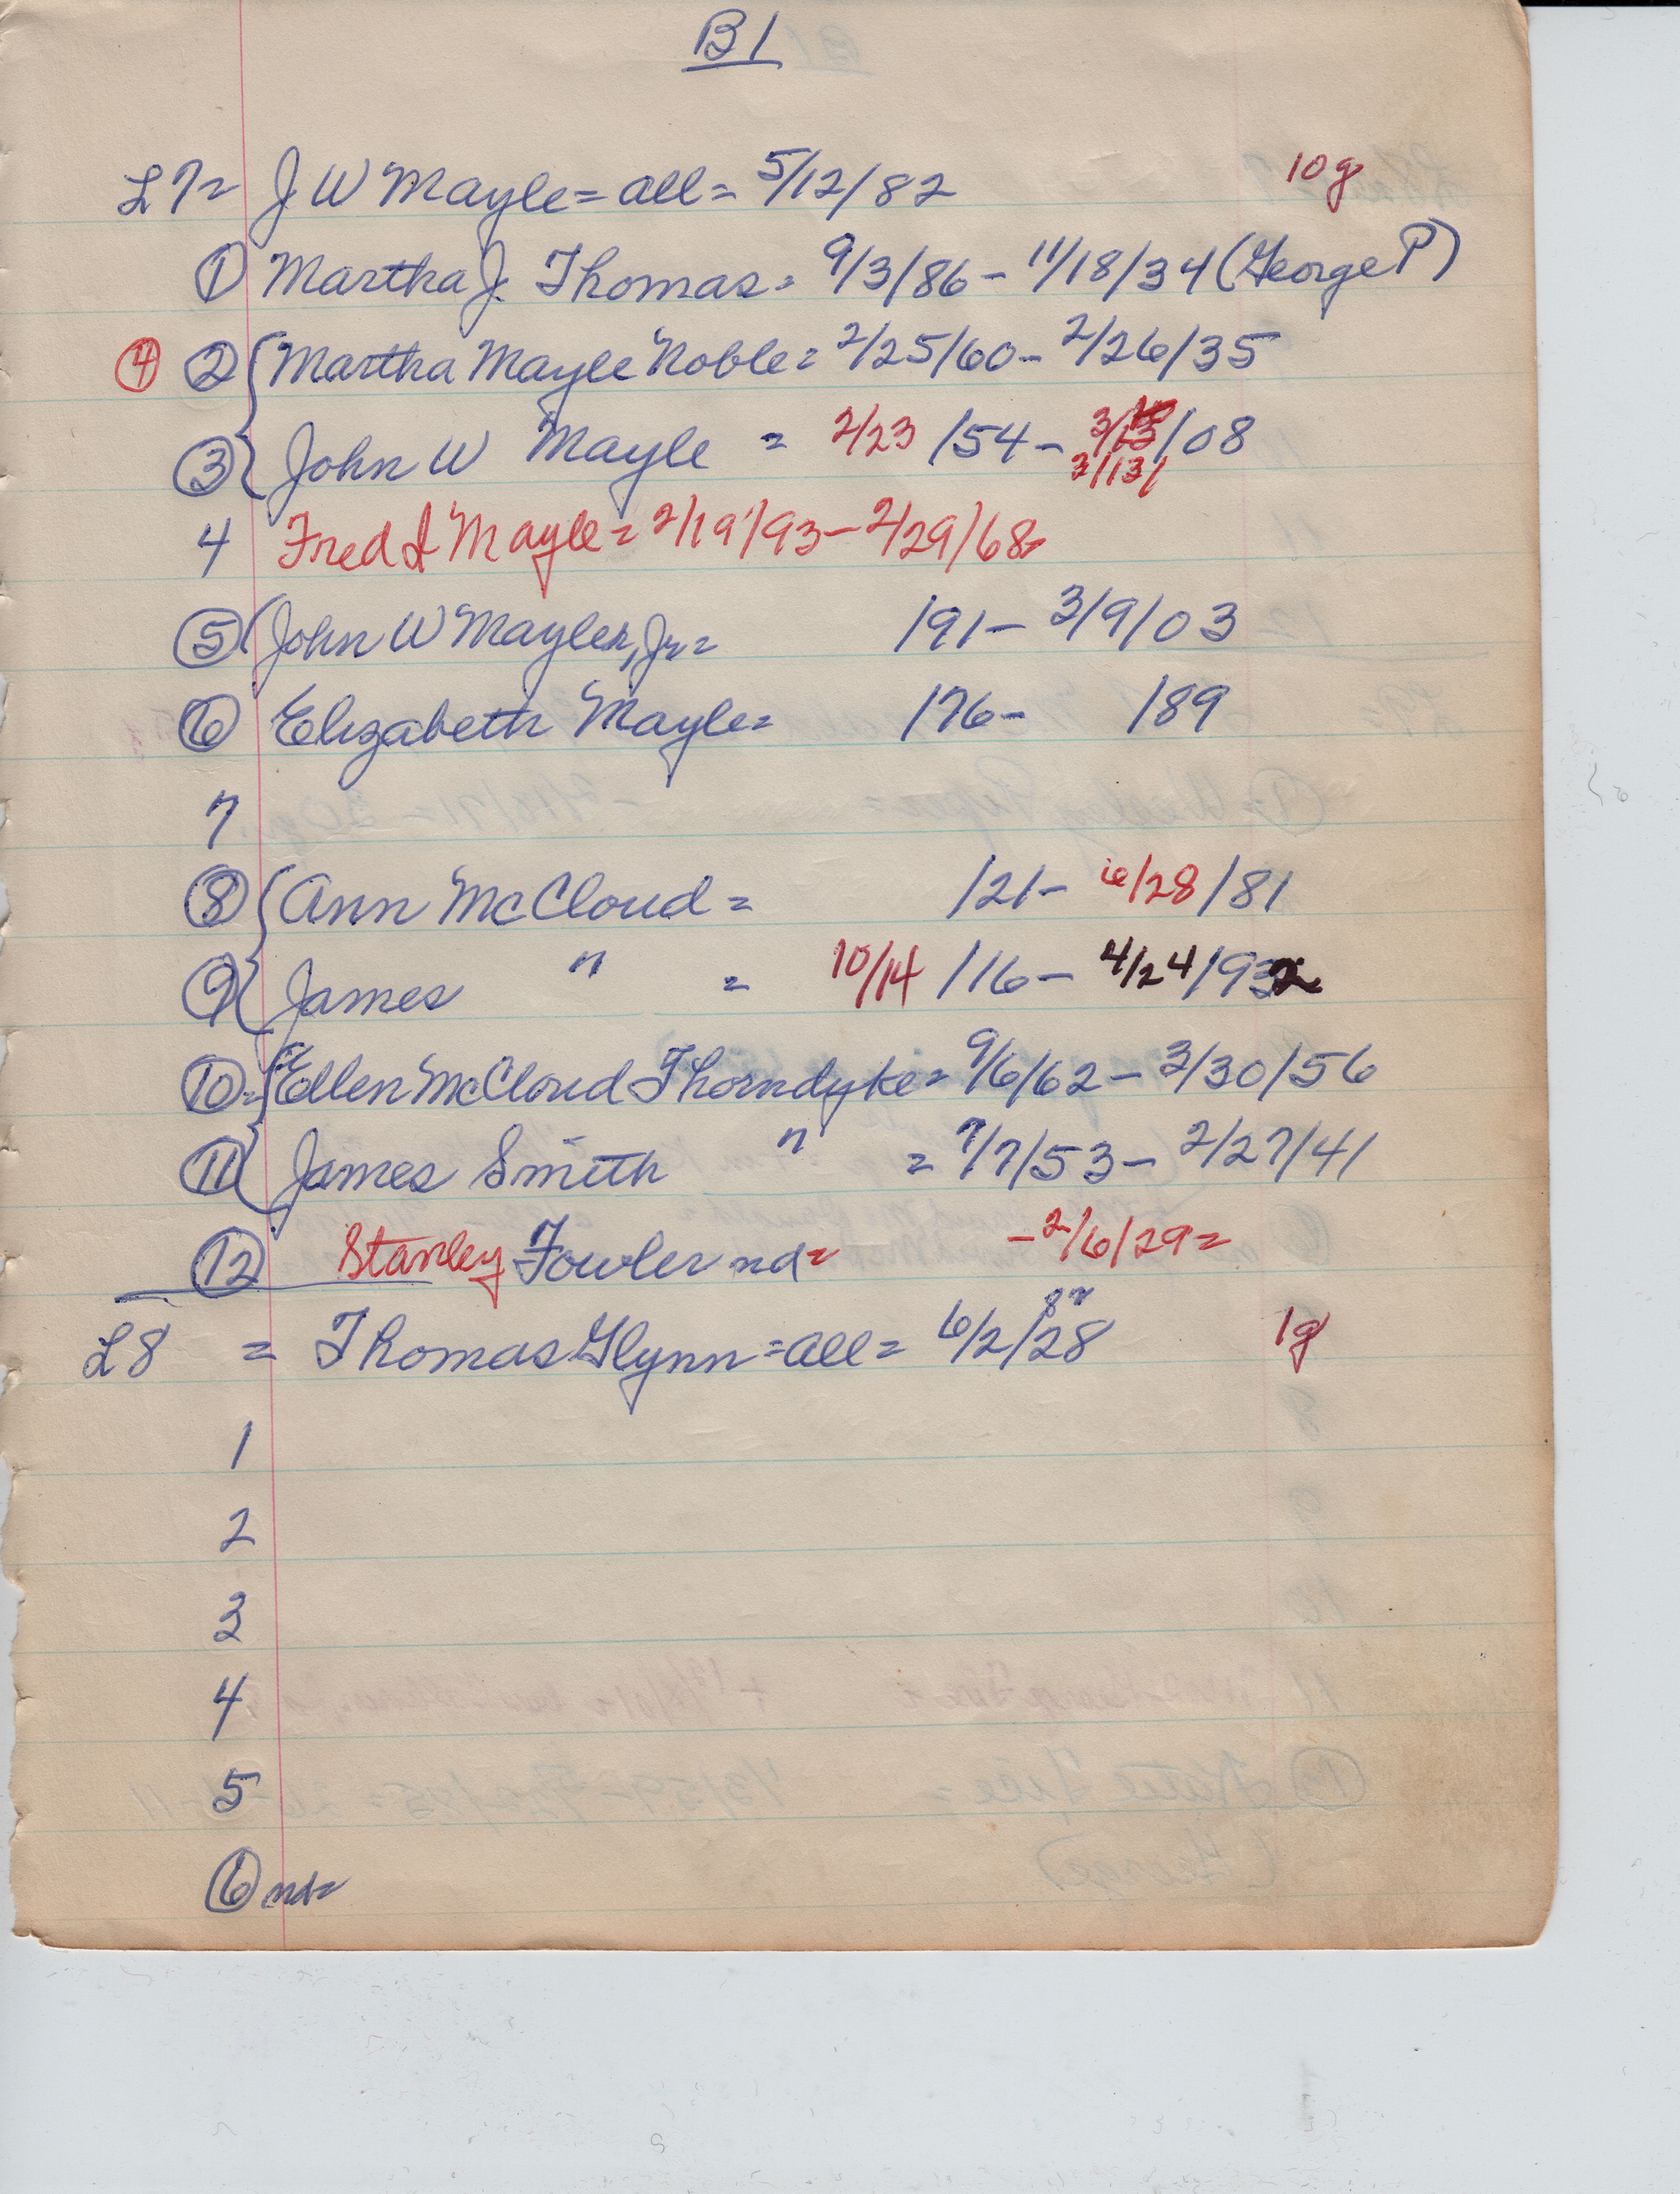 B1
L7= J W Mayle = all = 5/12/82 10g
① Martha J. Thomas = 9/3/86 - 11/18/34 (George P)
④ ② { Martha Mayle Noble = 2/25/60 - 2/26/35
③ { John W Mayle = 2/23/54 - 3/13/08
3/13/
4 Fred L Mayle = 2/19/93 - 2/29/68=
⑤ ( John W Mayle, Jr = /91 - 3/9/03
⑥ Elizabeth Mayle = /76 - /89
7
⑧ { Ann McCloud = /21 - 6/28/81
⑨ { James " = 10/14/16 - 4/24/92
⑩= { Ellen McCloud Thorndyke = 9/6/62 - 3/30/56
⑪ { James Smith " = 7/7/53 - 2/27/41
⑫ Stanley Fowler nd= - 2/6/29=
L8 = Thomas Glynn = all = 6/2/28 1g
1
2
3
4
5
⑥ nd=